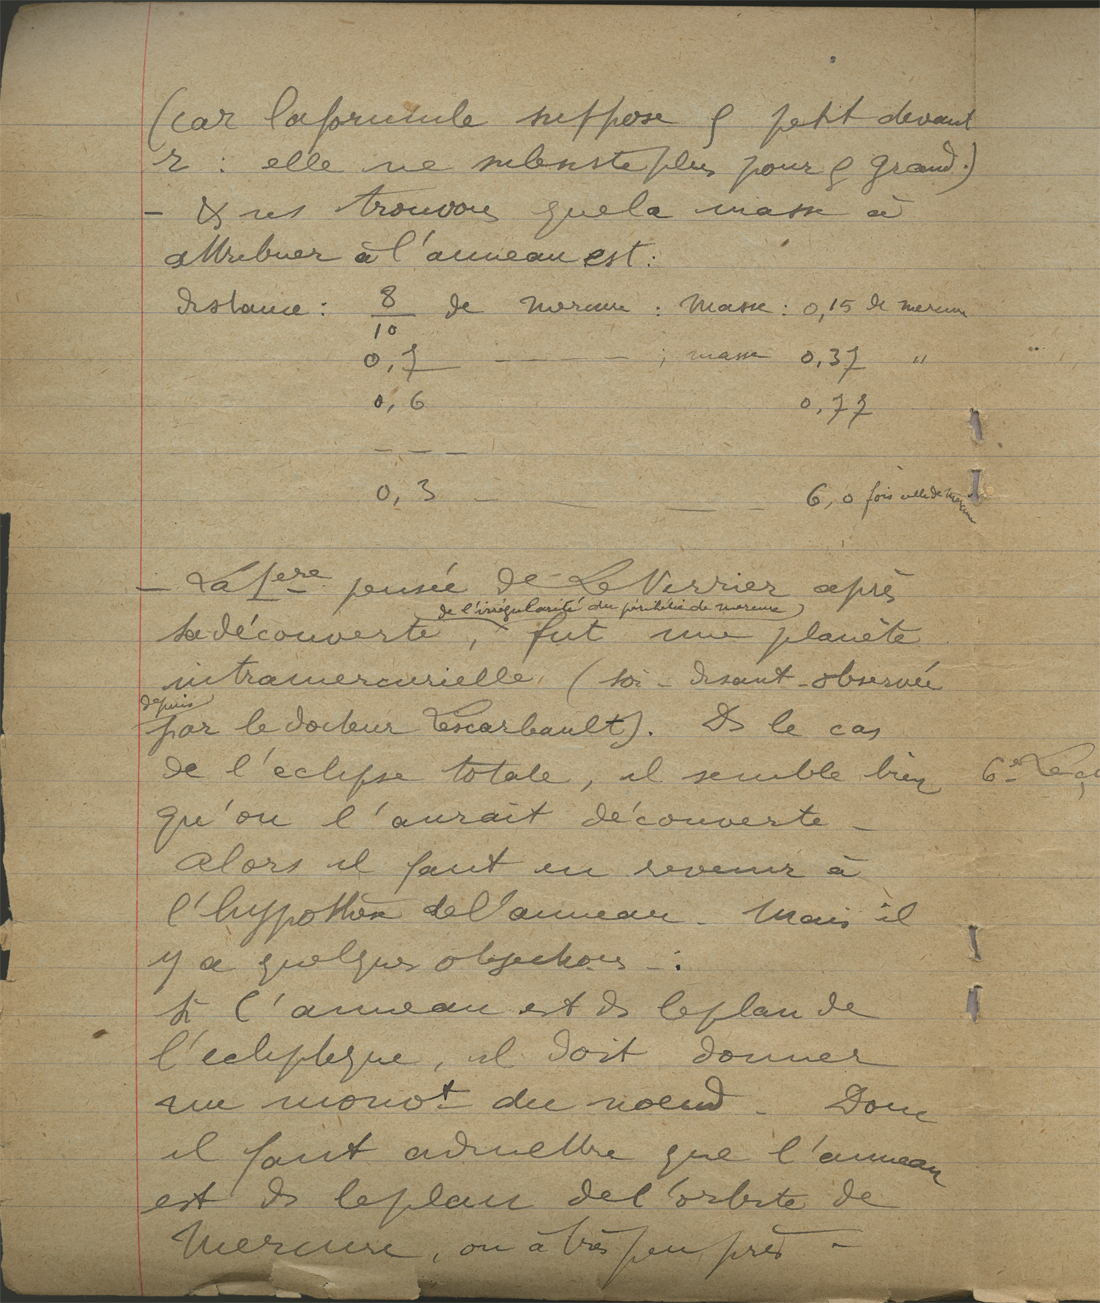 (car la formule suppose ρ petit devant
r : elle ne subsiste plus pour ρ grand.)
- & ns trouvons que la masse à
attribuer à l'anneau est :
distance : 8/10 de mercure : Masse : 0,15 de mercure
0,7 - - - - ; masse 0,37 "
0,6 0,77
- - -
0,3 - - - - 6,0 fois celle de Mercure
- La 1ere pensée de Le Verrier après
de l'irrégularité du périhélie de mercure
sa découverte, fut une planète
intramercurielle (soi-disant observée
depuis
par le docteur Lescarbault). Ds le cas
de l'éclipse totale, il semble bien
6e Leç
qu'on l'aurait découverte -
Alors il faut en revenir à
l'hypothèse de l'anneau - Mais il
y a quelques objections - :
Si l'anneau est ds le plan de
l'écliptique, il doit donner
un mouvt du noeud - Donc
il faut admettre que l'anneau
est ds le plan de l'orbite de
Mercure, ou à très peu près -